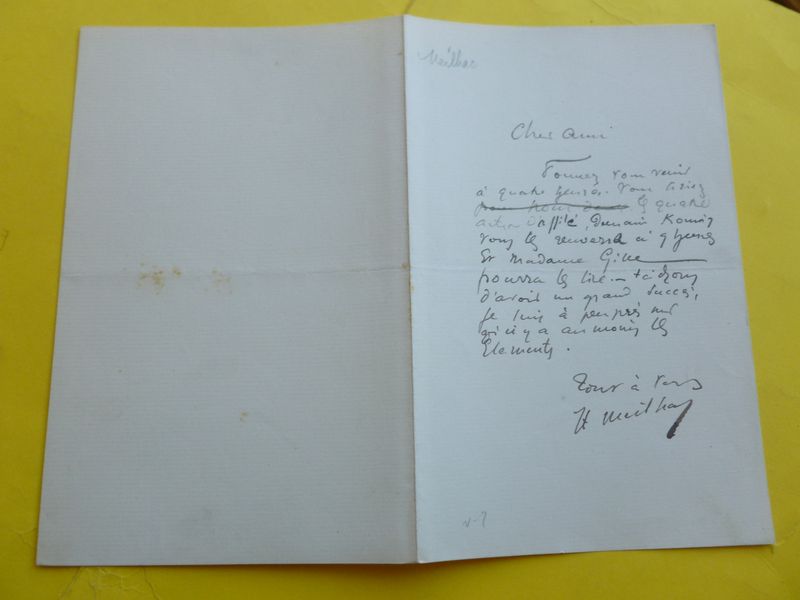 Meilhac
Cher ami
Venez
à quatre heures. Vous lirez
les quatre
actes d'affilé, demain Koning
vous les renverra à 9 heures
Et Madame Gille
pourra les lire. — tâchons
d'avoir un grand succès,
Je suis à peu près sur
qu'il y a au moins les
Elements.
Tout à vous
H Meilhac